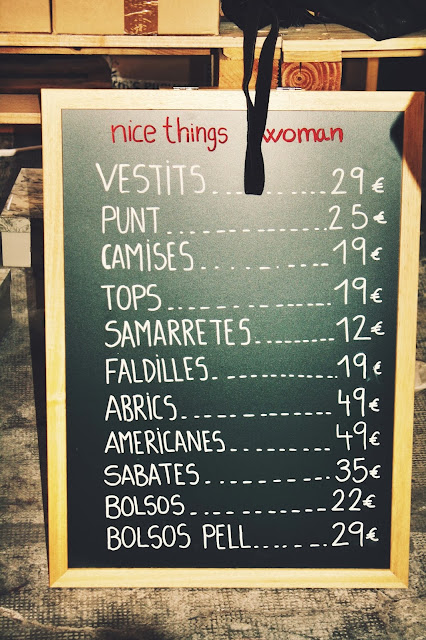 nice things woman
VESTITS..........29€
PUNT..............25€
CAMISES...........19€
TOPS..............19€
SAMARRETES........12€
FALDILLES.........19€
ABRICS............49€
AMERICANES........49€
SABATES...........35€
BOLSOS............22€
BOLSOS PELL......29€